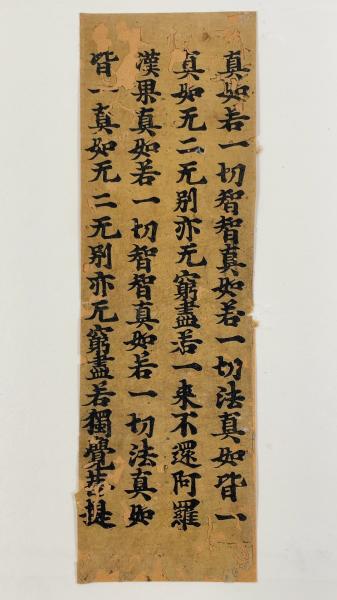 真如若一切智智真如若一切法真如皆一
真如无二无别亦无窮盡若一来不還阿羅
漢果真如若一切智智真如若一切法真如
皆一真如无二无别亦无窮盡若獨覺菩提